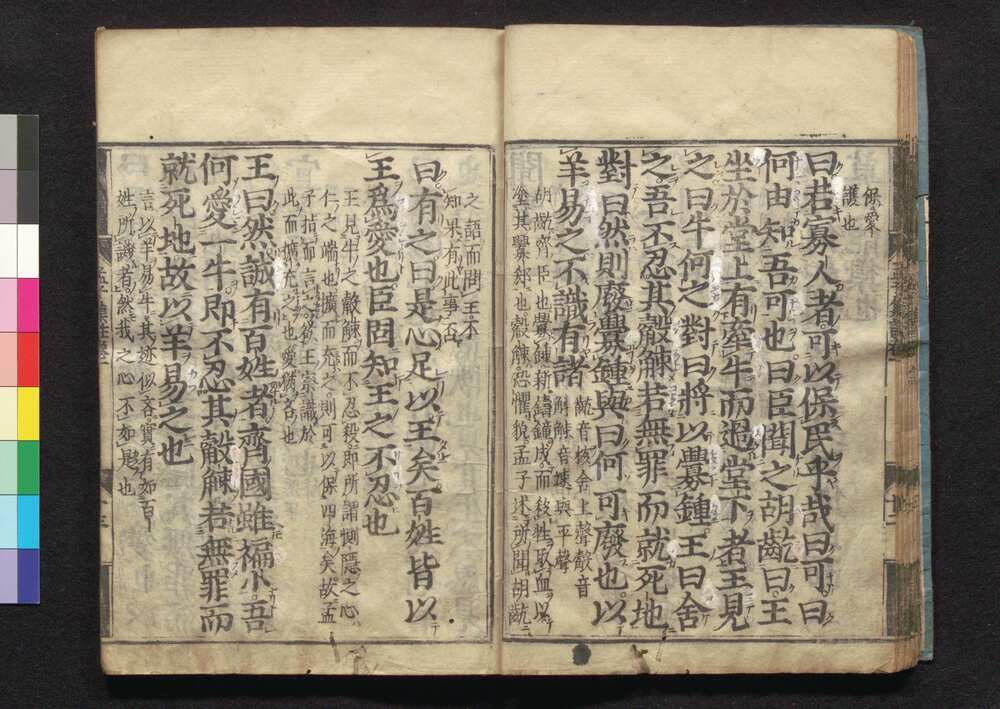 保愛
護也
曰若寡人者可以保民乎哉曰可曰
何由知吾可也曰臣聞之胡齕曰王
坐於堂上有牽牛而過堂下者王見
之曰牛何之對曰將以釁鍾王曰舍
之吾不忍其觳觫若無罪而就死地
對曰然則廢釁鍾與曰何可廢也以
羊易之不識有諸
齕音核舍上聲觳音
斛觫音速與平聲
胡齕齊臣也釁鍾新鑄鐘成而殺牲取血以
塗其釁郄也觳觫恐懼貌孟子述所聞胡齕
之語而問王不
知果有此事否
曰有之曰是心足以王矣百姓皆以
王爲愛也臣固知王之不忍也
王見牛之觳觫而不忍殺即所謂惻隱之心
仁之端也擴而充之則可以保四海矣故孟
子指而言之欲王察識於
此而擴充之也愛猶吝也
王曰然誠有百姓者齊國雖褊小吾
何愛一牛即不忍其觳觫若無罪而
就死地故以羊易之也
言以羊易牛其迹似吝實有如百
姓所譏者然我之心不如是也